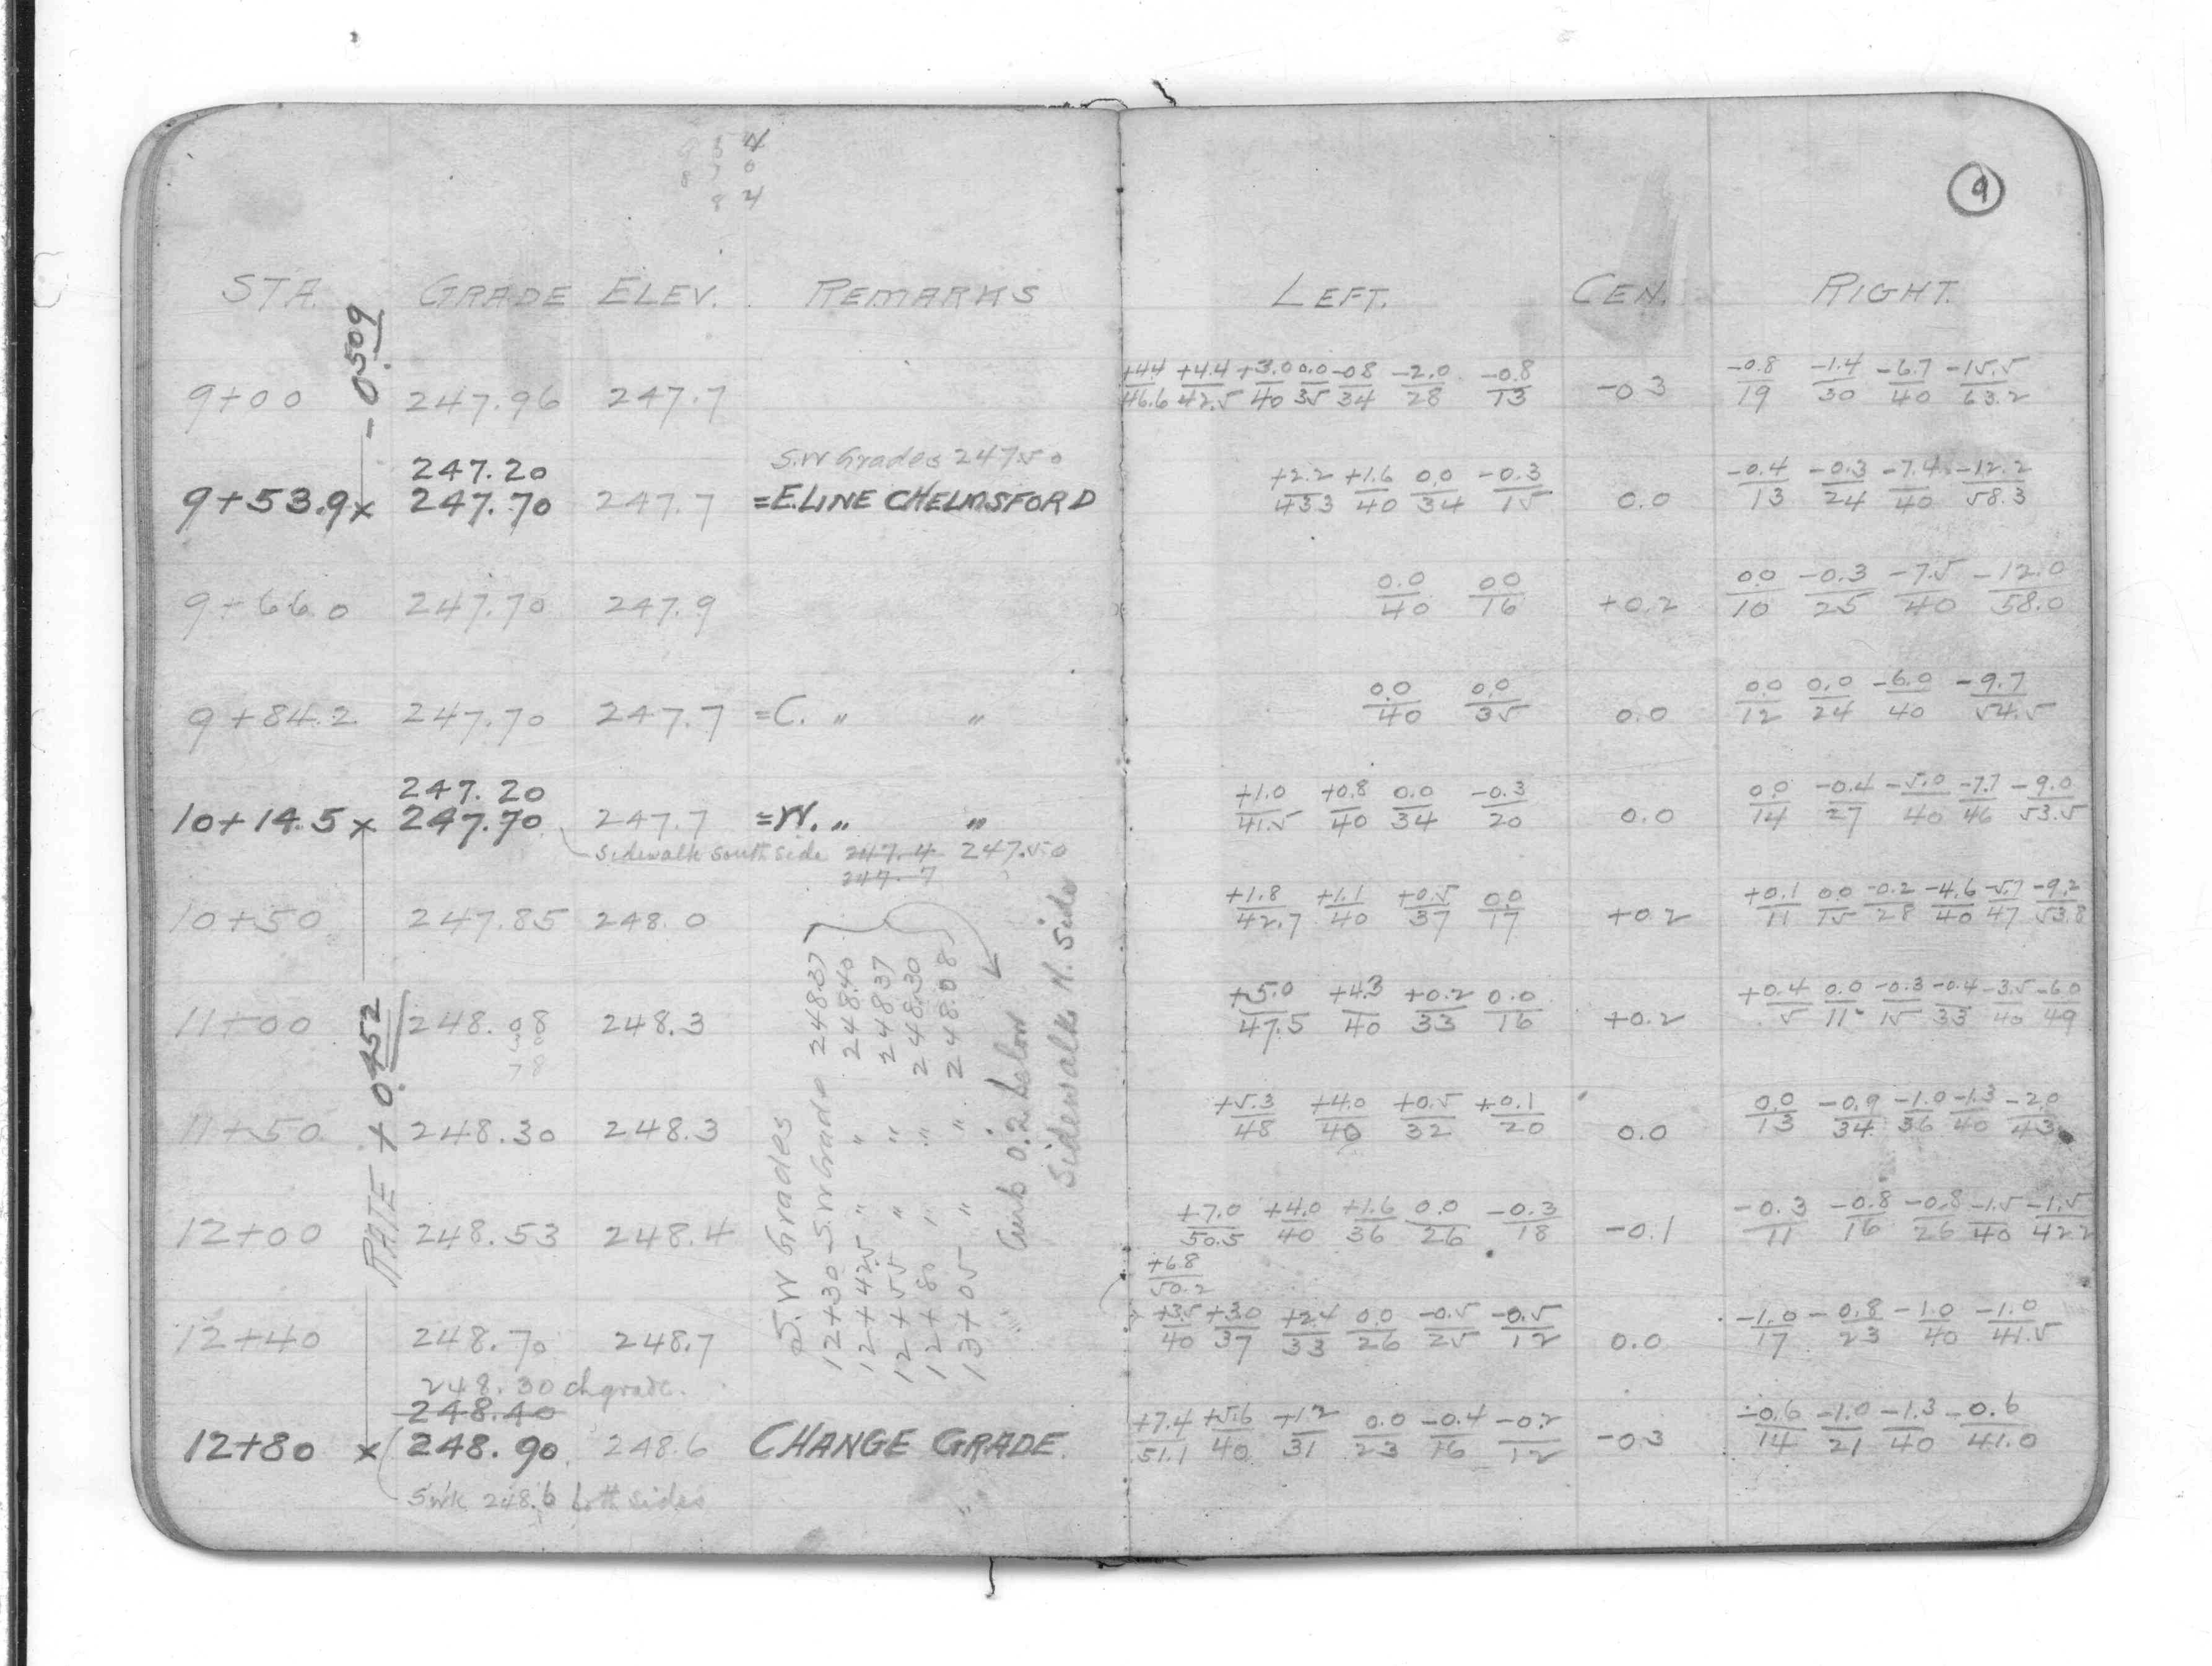 9
STA. GRADE ELEV. REMARKS LEFT. CEN. RIGHT.
- 0.509
9+00 247.96 247.7 +4.4/46.6 +4.4/42.5 +3.0/40 0.0/35 -0.8/34 -2.0/28 -0.8/13 -0.3 -0.8/19 -1.4/30 -6.7/40 -15.5/63.2
247.20 S.W Grades 247.50
9+53.9x 247.70 247.7 =E.LINE CHELMSFORD +2.2/43.3 +1.6/40 0.0/34 -0.3/15 0.0 -0.4/13 -0.3/24 -7.4/40 -12.2/58.3
9+66.0 247.70 247.9 0.0/40 00/16 +0.2 0.0/10 -0.3/25 -7.5/40 -12.0/58.0
9+84.2 247.70 247.7 =C. " " 0.0/40 0.0/35 0.0 0.0/12 0.0/24 -6.0/40 -9.7/54.5
247.20
10+14.5x 247.70 247.7 =W. " " +1.0/41.5 +0.8/40 0.0/34 -0.3/20 0.0 0.0/14 -0.4/27 -5.0/40 -7.7/46 -9.0/53.5
Sidewalk south side 247.4 247.50
247.7
10+50 247.85 248.0 +1.8/42.7 +1.1/40 +0.5/37 0.0/17 +0.2 +0.1/11 0.0/15 -0.2/28 -4.6/40 -5.7/47 -9.2/53.8
11+00 248.08 248.3 +5.0/47.5 +4.3/40 +0.2/33 0.0/16 +0.2 +0.4/5 0.0/11 -0.3/15 -0.4/33 -3.5/40 -6.0/49
78
RATE + 0.452
11+50 248.30 248.3 +5.3/48 +4.0/40 +0.5/32 +0.1/20 0.0 0.0/13 -0.9/34 -1.0/36 -1.3/40 -2.0/43
12+00 248.53 248.4 +7.0/50.5 +4.0/40 +1.6/36 0.0/26 -0.3/18 -0.1 -0.3/11 -0.8/16 -0.8/26 -1.5/40 -1.5/42.2
+6.8/50.2
12+40 248.70 248.7 +3.5/40 +3.0/37 +2.4/33 0.0/26 -0.5/25 -0.5/12 0.0 -1.0/17 -0.8/23 -1.0/40 -1.0/41.5
248.30 ch grade.
248.40
12+80 x 248.90 248.6 CHANGE GRADE. +7.4/51.1 +5.6/40 +1.2/31 0.0/23 -0.4/16 -0.2/12 -0.3 -0.6/14 -1.0/21 -1.3/40 -0.6/41.0
Swk 248.6 both sides
S.W Grades
12+30 S.W Grade 248.37
12+42.5 " " 248.40
12+55 " " 248.37
12+80 " " 248.30
13+05 " " 248.08
Curb 0.2 below
Sidewalk N. Side